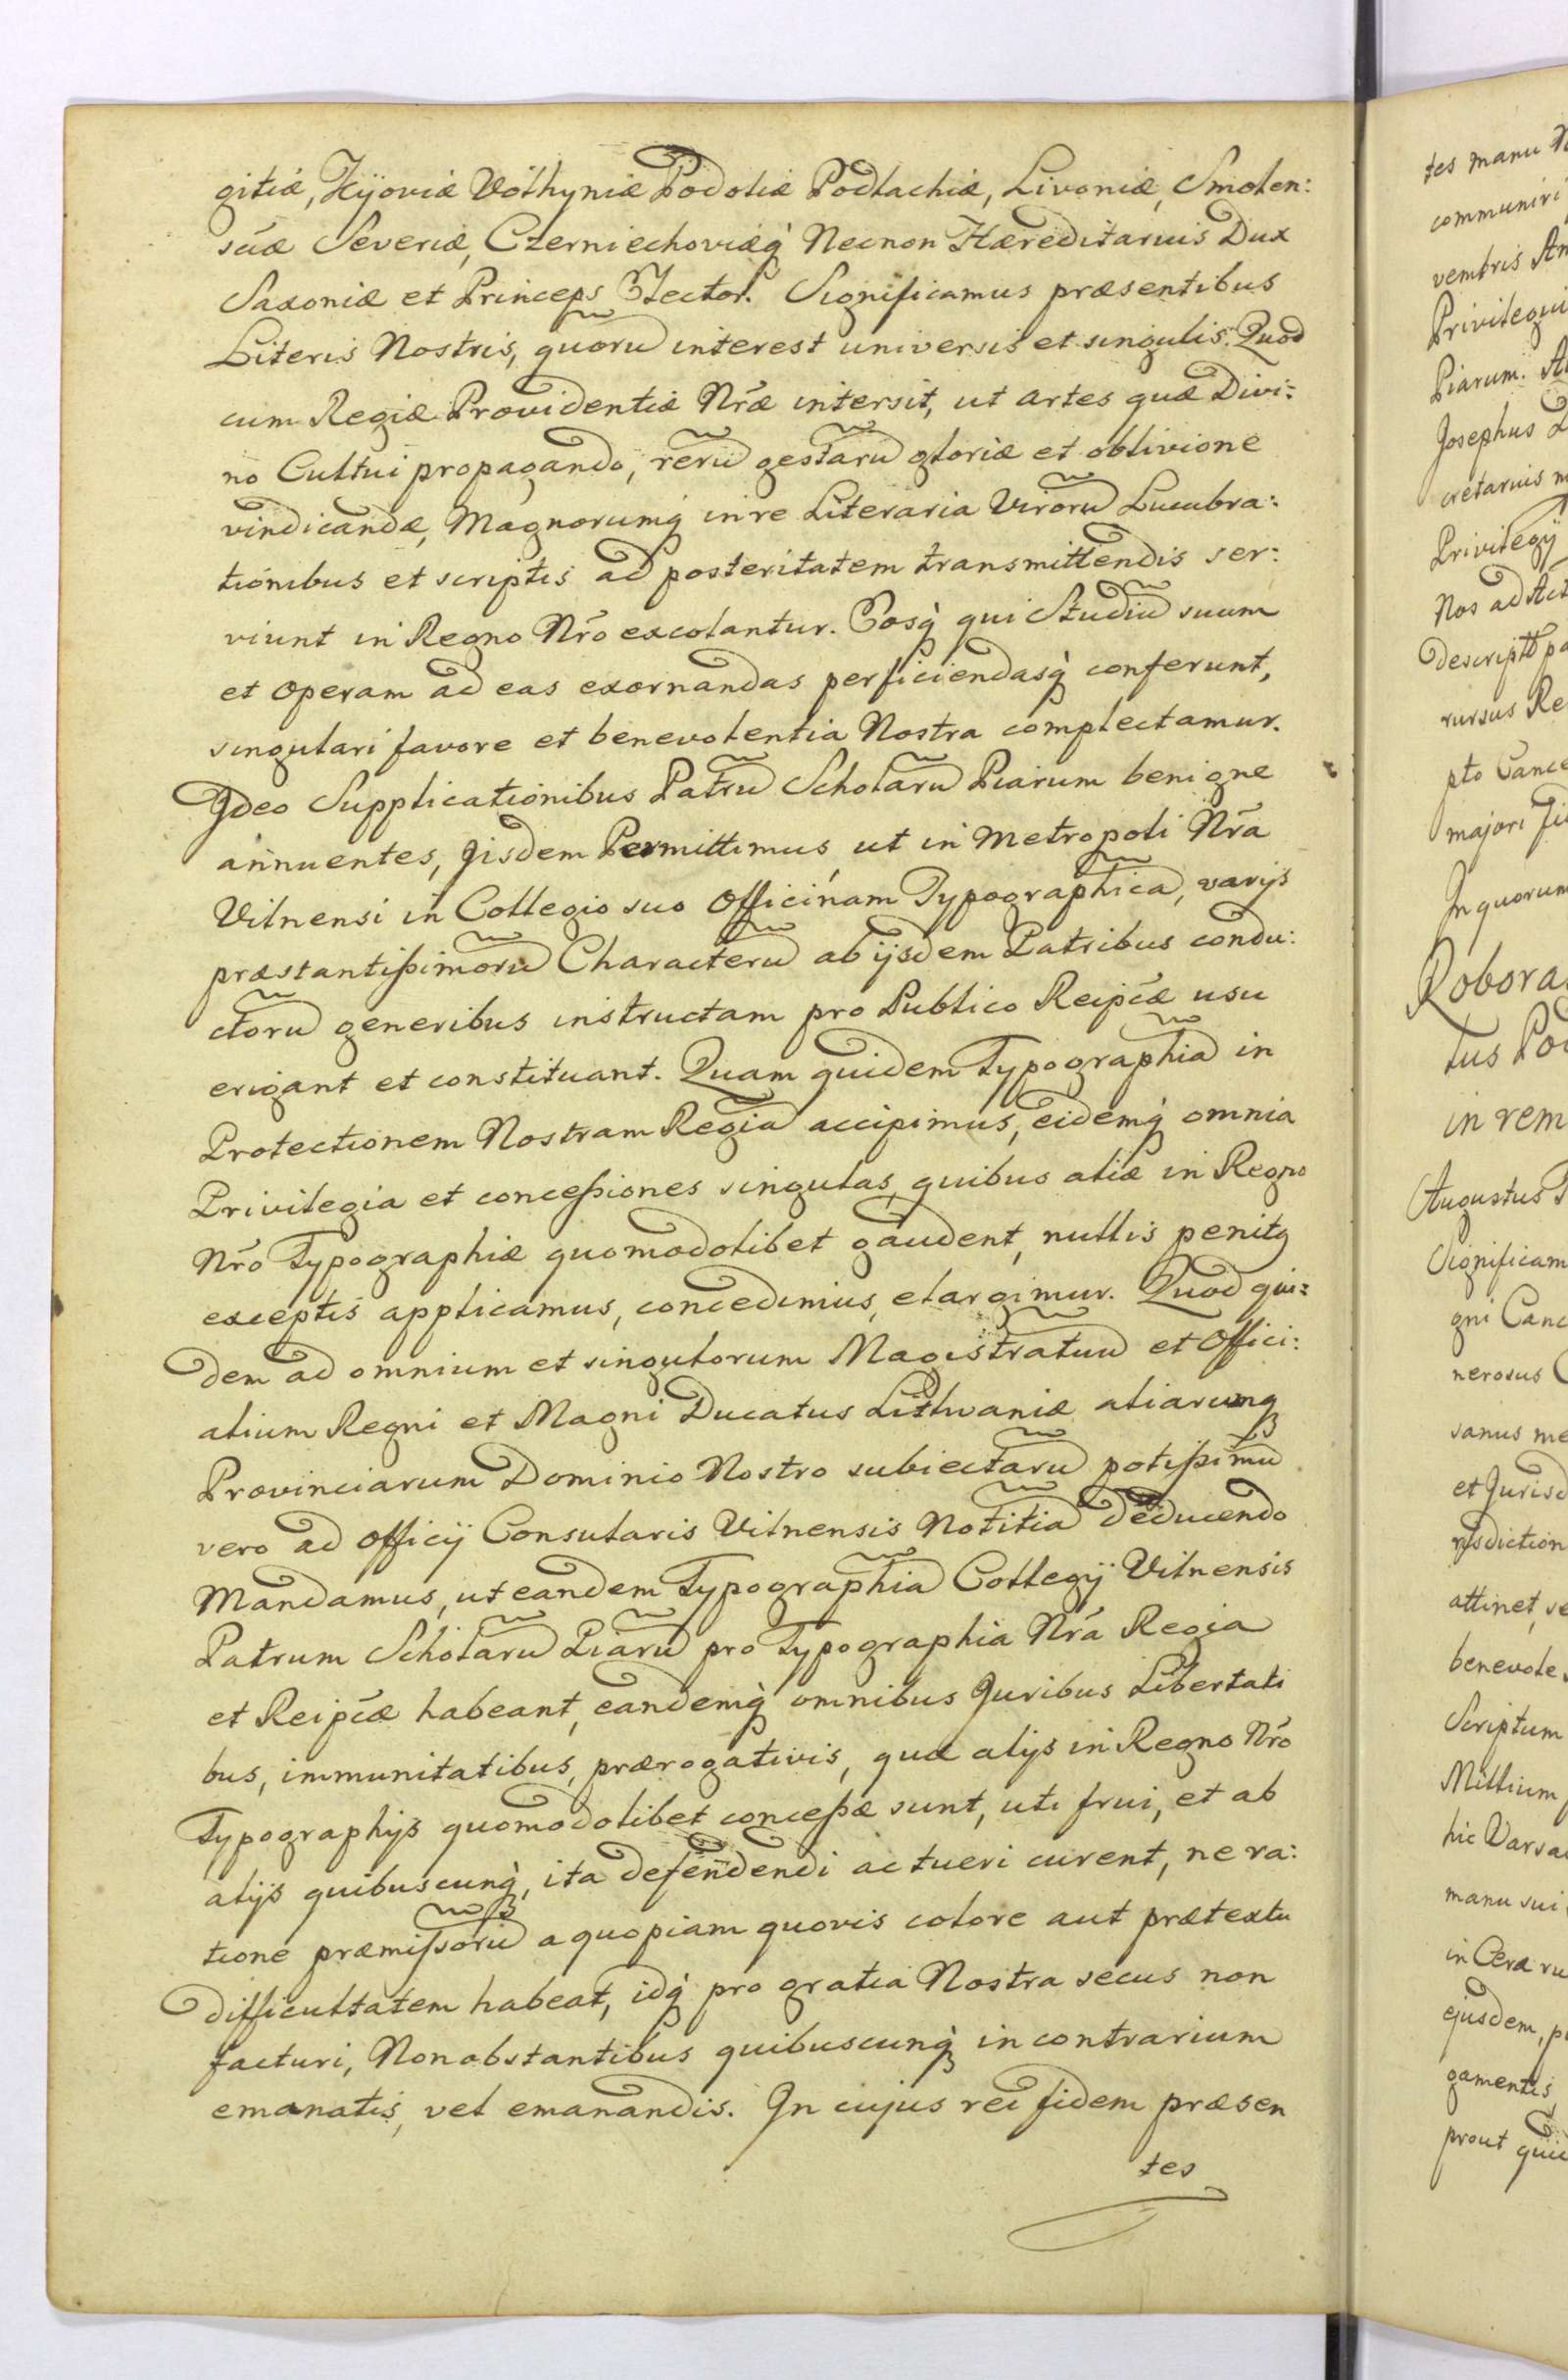 gitiæ, Kÿoviæ Volhyniæ Podoliæ Podlachiæ, Livoniæ, Smolen:
scæ Severiæ, Czerniechoviæq̀ Necnon Hæreditarius Dux
Saxoniæ et Princeps Elector. Significamus præsentibus
Literis Nostris, quorũ interest universis et singulis. Quod
cum Regiæ Providentiæ Nr̃æ intersit, ut artes quæ Divi:
no Cultui propagando, rerũ gestarũ gloriæ et oblivione
vindicandæ, Magnorumq̀ in re Literaria Virorũ Lucubra:
tionibus et scriptis ad posteritatem transmittendis ser:
viunt in Regno Nr̃o excolantur. Eosq̀ qui Studiũ suum
et operam ad eas exornandas perficiendasq̀ conferunt,
singulari favore et benevolentia Nostra complectamur.
Ideo Supplicationibus Patrũ Scholarũ Piarum benigne
annuentes, Iisdem Permittimus, ut in Metropoli Nr̃a
Vilnensi in Collegio suo Officinam Typographicã, varijs
præstantißimorũ Characterũ ab ijsdem Patribus condu:
ctorũ generibus instructam pro Publico Reip̃cæ usu
erigant et constituant. Quam quidem Typographiã in
Protectionem Nostram Regiã accipimus, eidemq̀ omnia
Privilegia et conceßiones singulas, quibus aliæ in Regno
Nr̃o Typographiæ quomodolibet gaudent, nullis penitq
exceptis applicamus, concedimus, elargimur. Quod qui:
dem ad omnium et singulorum Magistratuũ et Offici:
alium Regni et Magni Ducatus Lithvaniæ aliarumq
Provinciarum Dominio Nostro subiectarũ potißimũ
vero ad Officij Consularis Vilnensis Notitiã deducendo
Mandamus, ut eandem Typographiã Collegÿ Vilnensis
Patrum Scholarũ Piarũ pro Typographia Nr̃a Regia
et Reip̃cæ habeant, eandemq̀ omnibus Iuribus Libertati
bus, immunitatibus, prærogativis, quæ alijs in Regno Nr̃o
Typographijs quomodolibet conceßæ sunt, uti frui, et ab
alijs quibuscunq̀, ita defendendi ac tueri curent, ne ra:
tione præmißorũ a quopiam quovis colore aut prætextu
difficultatem habeat, idq̀ pro gratia Nostra secus non
facturi, Non obstantibus quibuscunq̀ in contrarium
emanatis, vel emanandis. In cujus rei fidem præsen
tes
tes manu
communiri
vembris
Privilegii
Piarum.
Josephus
cretarius
Privilegÿ
Nos ad
descript
rursus Re
pto Cance
majori
In quorum
Robora
tus
in rem
Augustus
Significam
gni Canc
nerosus
sanus me
et Jurisd
risdiction
attinet, se
benevole
Scriptum
Millium
hic Varsa
manu sui
in Cera ru
ejusdem, p
gamentis
prout qui